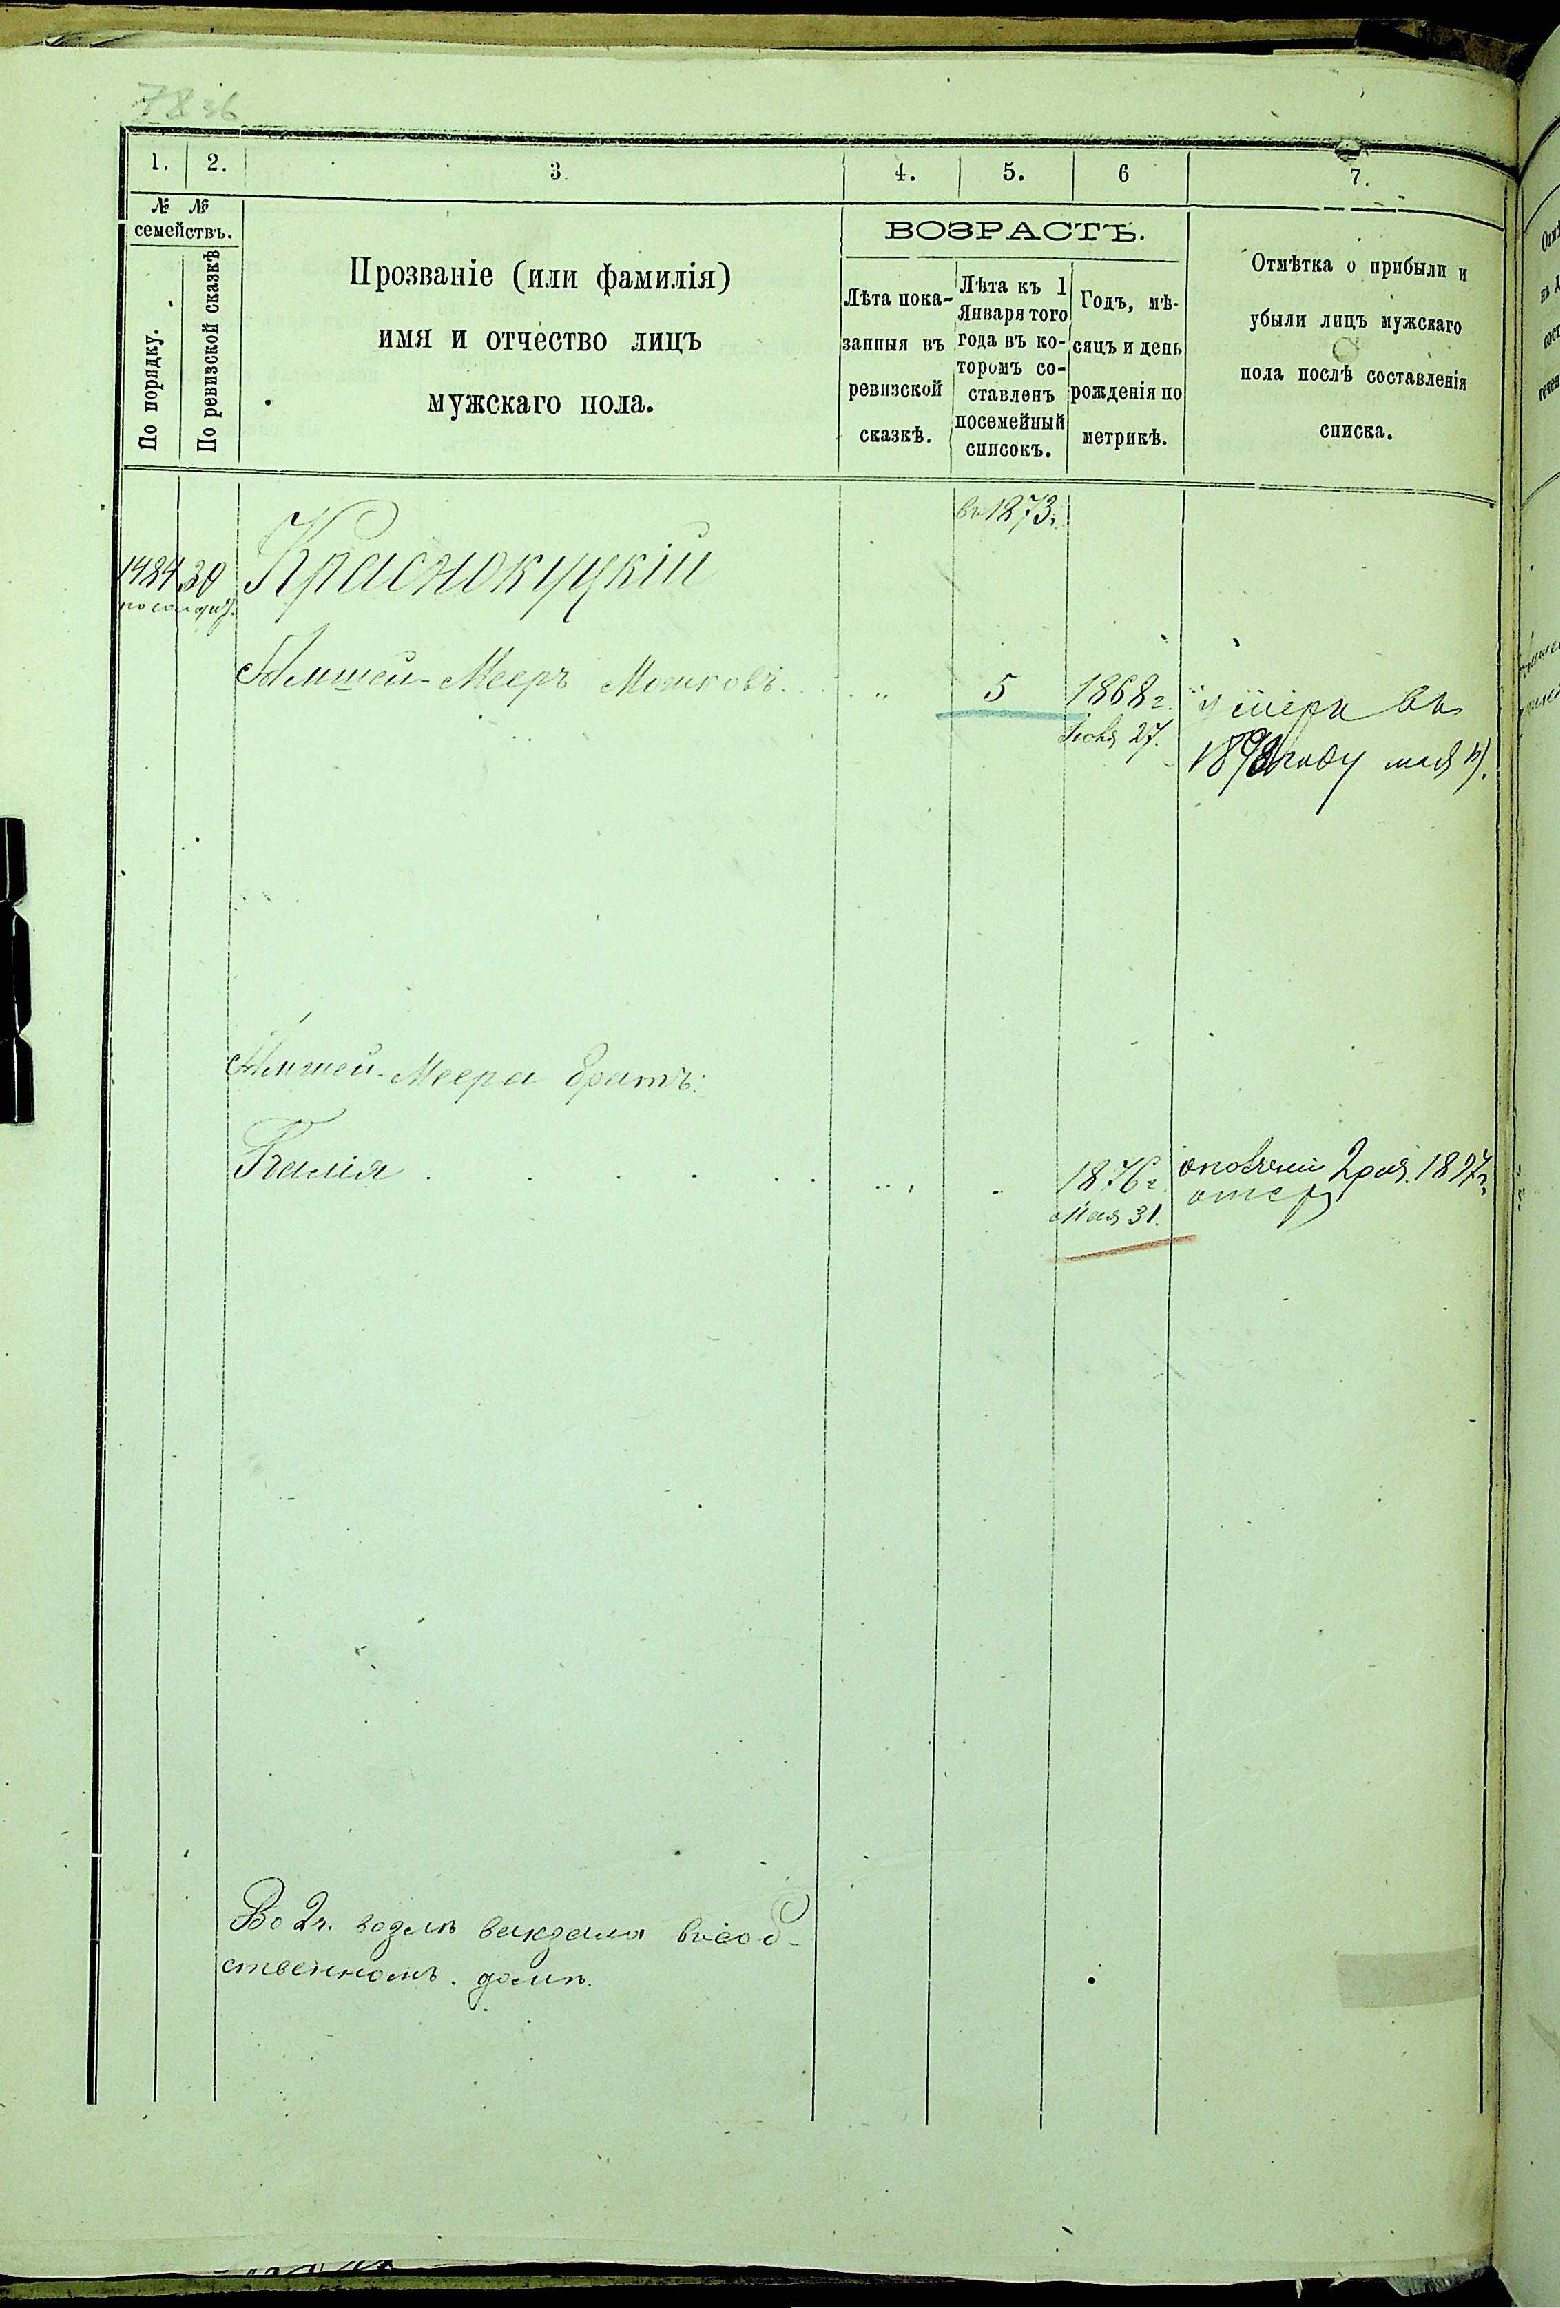 1. 2. 3. 4. 5. 6 7.
№ № семействъ.
По порядку.
По ревизской сказкѣ
Прозваніе (или фамилія)
имя и отчество лицъ
мужскаго пола.
ВОЗРАСТЪ.
Лѣта пока-
занныя въ
ревизской
сказкѣ.
Лѣта къ 1
Января того
года въ ко-
торомъ со-
ставленъ
посемейный
списокъ.
Годъ, мѣ-
сяцъ и день
рожденія по
метрикѣ.
Отмѣтка о прибыли и
убыли лицъ мужскаго
пола послѣ составленія
списка.
въ 1873г.
1484 30 Краснокуцкій
Мееръ Мошковъ 5 1868г. умеръ въ
27. году мая
Меера братъ:
1876г. 1897г.
Мая 31.
Во 2ч. возлѣ вакзала въ соб-
ственномъ домѣ.